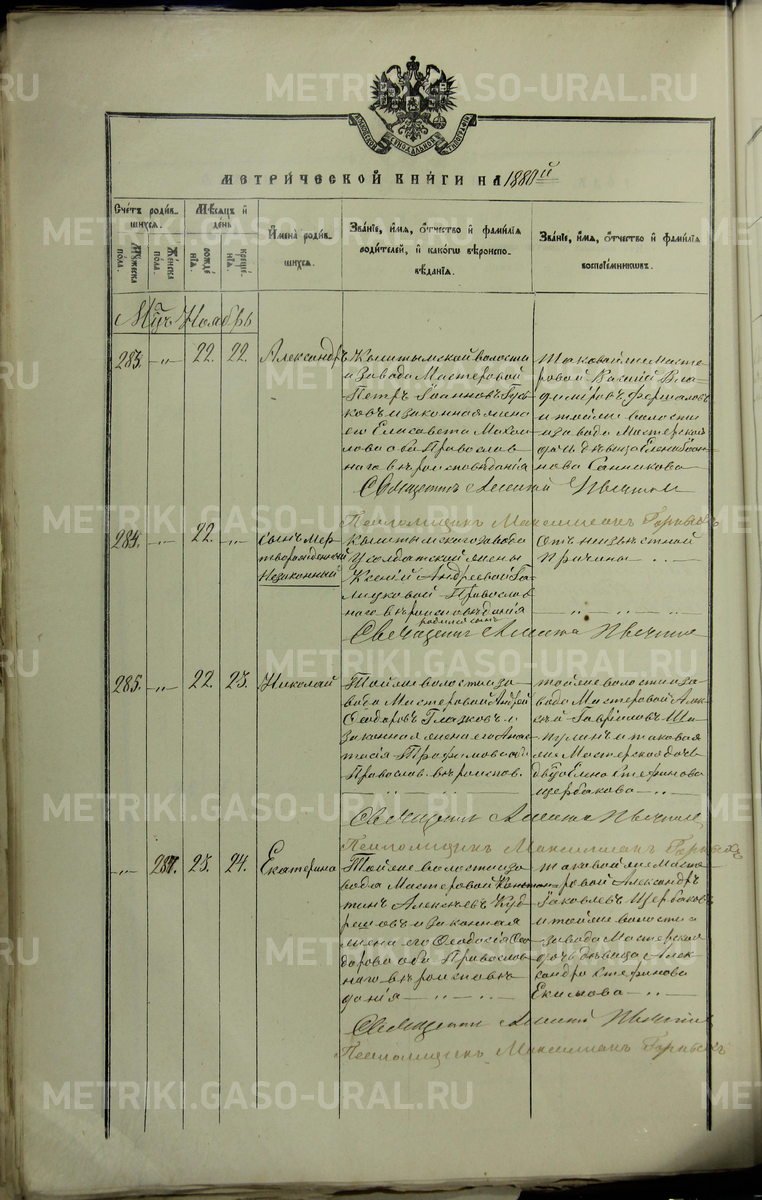 МЕТРИЧЕСКОЙ КНИГИ НА 1880й
Счетъ родив-
шихся.
Мужеска
пола.
Женска
пола.
Мѣсяцъ и
день
рожде-
нія.
креще-
нія.
Имена родив-
шихся.
Званіе, имя, отчество и фамилія
родителей, и какого вѣроиспо-
вѣданія.
Званіе, имя, отчество и фамилія
воспріемниковъ.
Ноябрь
283. 22. 22. Александръ
Кыштымской волости
и завода Мастеровой
Петръ Іоанновъ
и законная жена
его Елисавета
оба Православ-
наго вѣроисповѣданія
Таковой же Масте-
ровой Василій Вла-
диміровъ
и той же волости
и завода Мастерская
дочь дѣвица Елена Іоан-
нова Санникова
Священникъ
Псаломщикъ Максимиланъ
284. 22.
Сынъ Мер-
творожденный
Незаконный
Кыштымскаго завода
У солдатской жены
Ксеніи Андреевой
Православ-
наго вѣроисповѣданія
родился сынъ
Отъ неизвѣстной
Причины
Священникъ
285. 22. 23. Николай
Той же волости и за-
вода Мастеровой Андрей
Ѳеодоровъ Глазковъ и
законная жена его Анас-
тасія Трофимова оба
Православ. вѣроиспов.
той же волости и за-
вода Мастеровой Алек-
сѣй Гавріиловъ Ша-
пулинъ и таковая
же Мастерская дочь
Елена Стефанова
Щербакова
Священникъ
Псаломщикъ Максимиланъ
287. 23. 24. Екатерина
Той же волости и за-
вода Мастеровой Констан-
тинъ Алексѣевъ Куд-
решовъ и законная
жена его Ѳеодосія Ѳео-
дорова оба Православ-
наго вѣроисповѣ-
данія
таковой же Масте-
ровой Александръ
Іаковлевъ Щербаковъ
и той же волости и
завода Мастерская
дочь дѣвица Алек-
сандра Стефанова
Екимова
Священникъ
Псаломщикъ Максимиланъ
METRIKI.GASO-URAL.RU